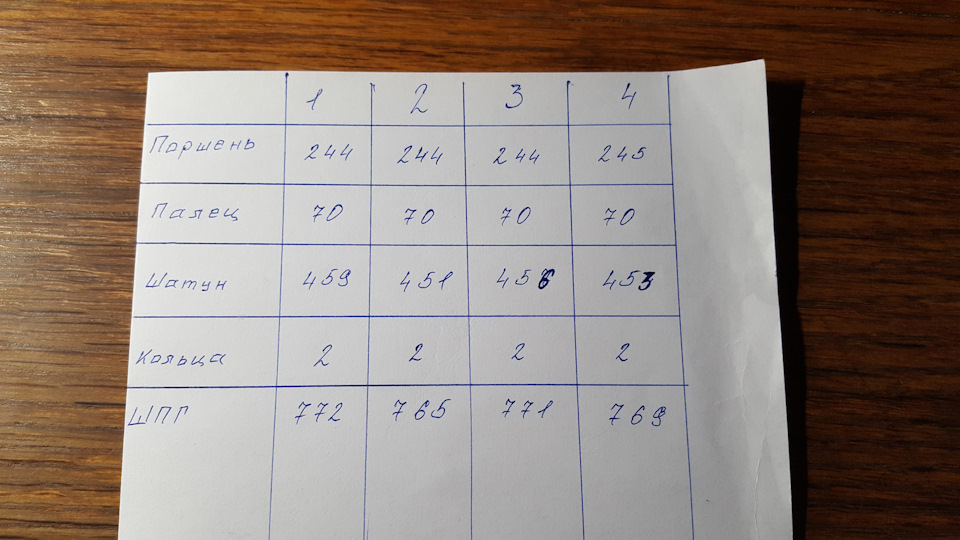 1 2 3 4
Поршень 244 244 244 245
Палец 70 70 70 70
Шатун 459 451 456 453
Кольца 2 2 2 2
ШПГ 772 765 771 769